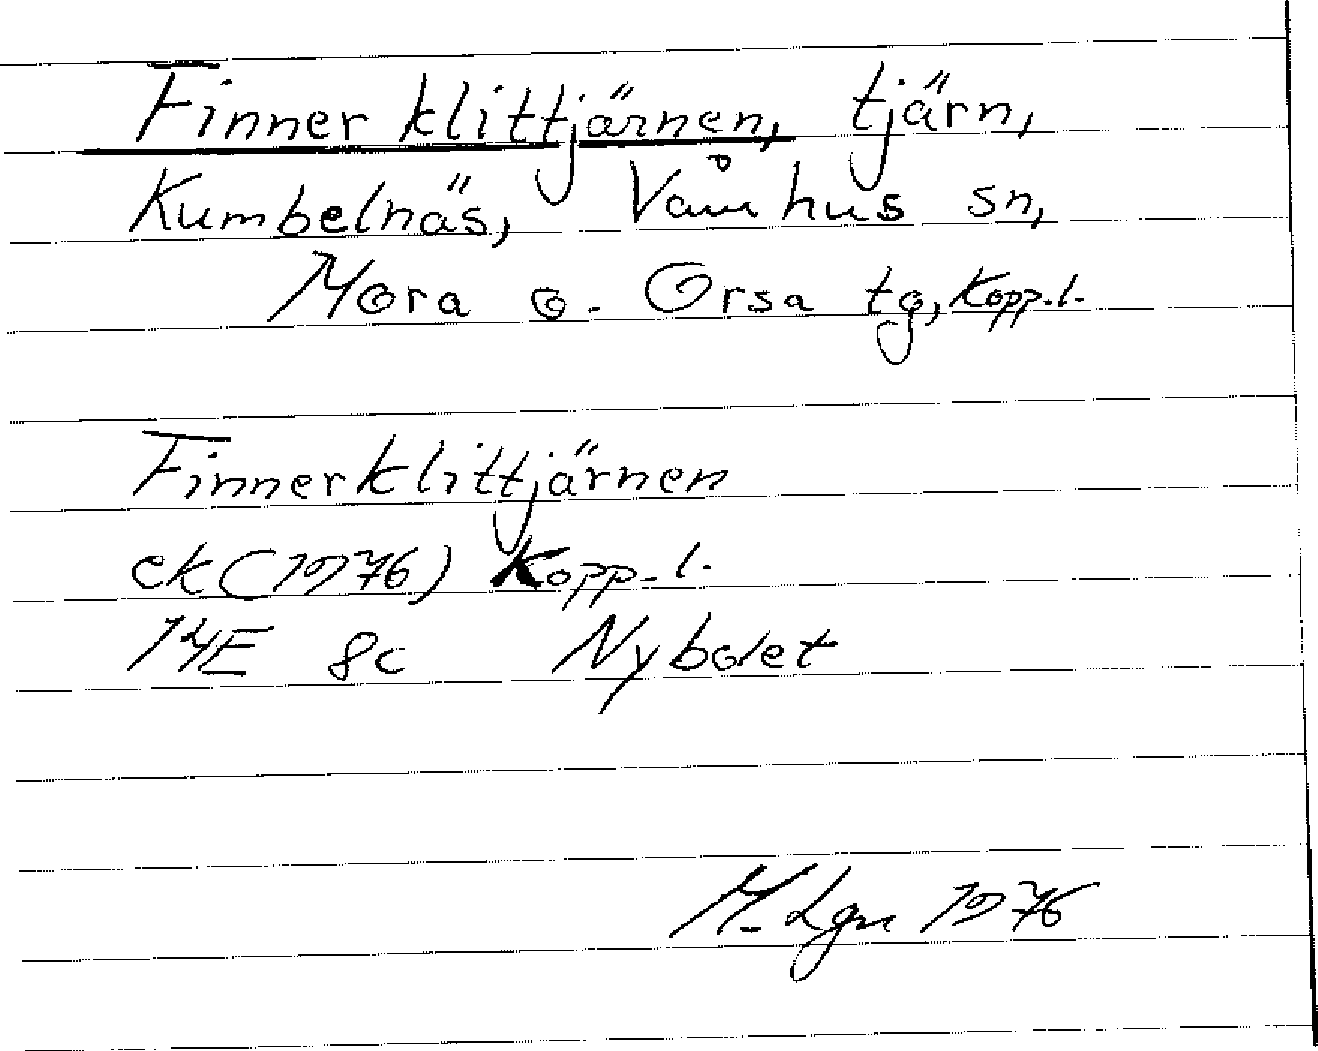 Finnerklittjärnen, tjärn,
Kumbelnäs, Våmhus sn,
Mora o. Orsa tg, Kopp. l.
Finnerklittjärnen
ek (1976) Kopp. l.
14E 8c Nybolet
M. Lgn 1976